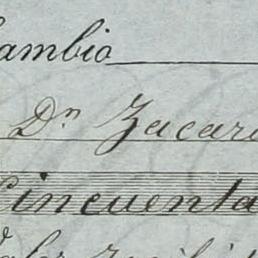 ambio
Dn Zacar
Cincuenta